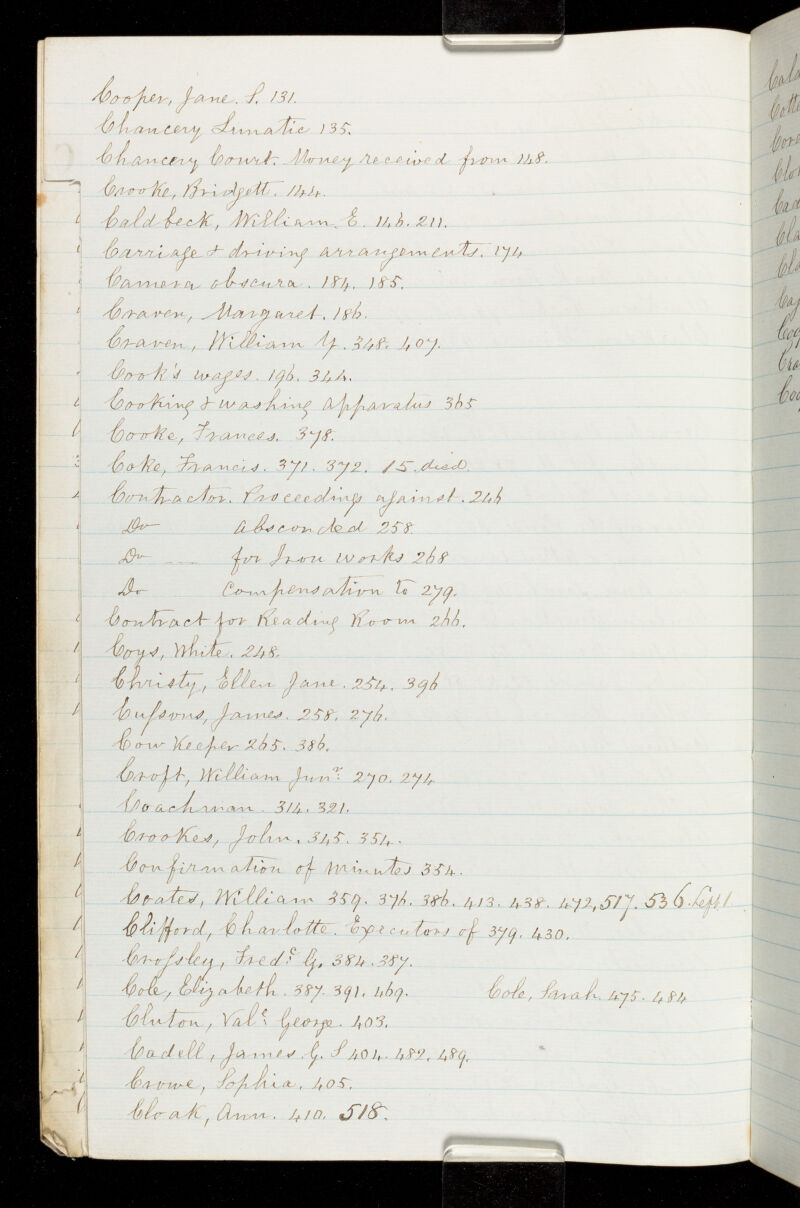 Cooper, Jane. S. 131.
Chancery Lunatic 135.
Chancery Court. Money received from 148.
Crooke, Bridgett. 144.
Caldbeck, William. E. 146. 211.
Carriage & driving arrangements. 174
Camera obscura. 184. 185.
Craven, Margaret. 186.
Craven, William Y. 348. 407.
Cook's wages. 196. 344.
Cooking & washing apparatus 365
Cooke, Frances. 378.
Coke, Francis. 371. 372. 15. died.
Contractor. Proceedings against. 246
Do absconded 258.
Do for Iron works 268
Do compensation to 279.
Contract for Reading Room 266.
Coys, White. 248.
Christy, Ellen Jane. 254. 396
James. 258. 276.
Cow Keeper 265. 386.
Croft, William Junr. 270. 274
Coachman. 314. 321.
Crookes, John. 345. 354.
Confirmation of minutes 354.
Coates, William 359. 376. 386. 413. 438. 472, 517. 536.
Clifford, Charlotte. Executors of 379. 430.
Crossley, Fredc. G. 384. 387.
Cole, Elizabeth. 387. 391. 469. Cole, Sarah. 475. 484
Cluton, Vale. George. 403.
Cadell, James. G. S 404. 482. 489.
Crowe, Sophia. 405.
Cloak, Ann. 410. 518.